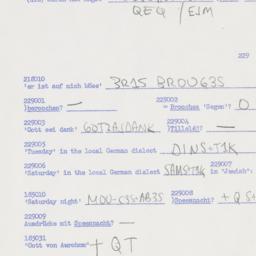 QEQ / EJM
229
218010
'er ist auf mich böse' 3R15 BROUG3S
229001 229002
)beroochen? — = Broochen 'Segen'? O
229003 229004
'Gott sei dank' GOTZAIDANK )Tilleld? —
229005
'Tuesday' in the local German dialect DINST1K
229006 229007
'Saturday' in the local German dialect SAMST1K in 'Jewish':
185010 229008
'Saturday night' )Speennacht? + QS+
229009
Ausdrücke mit Speennacht? —
185031
'Gott von Awrohom' + QT